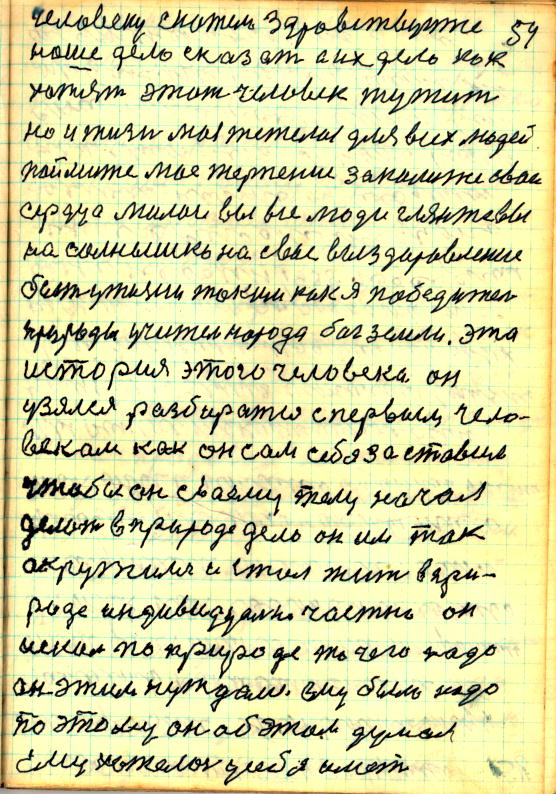 человеку скажем здравствуйте 54
наше дело сказат а их дело как
хотят этот человек тужит
но и жизн моя тежелая для всех людей
поймите мае терпение закалите свае
сердца милаи вы вы люди гляньте вы
на солнышко на свае выздаравление
таким как я победител
природы учител народа бог земли. эта
история этого человека он
узялся разбиратьс с первым чело-
векам как он сам себя заставил
чтобы он сваему телу начал
делат в природе дело он им так
акружился и стал жит в при-
роде индивидуално частно он
искал по природе то чего надо
он этим нуждалс. ему было надо
по этому он об этом думал
ему хотелос у себя имет